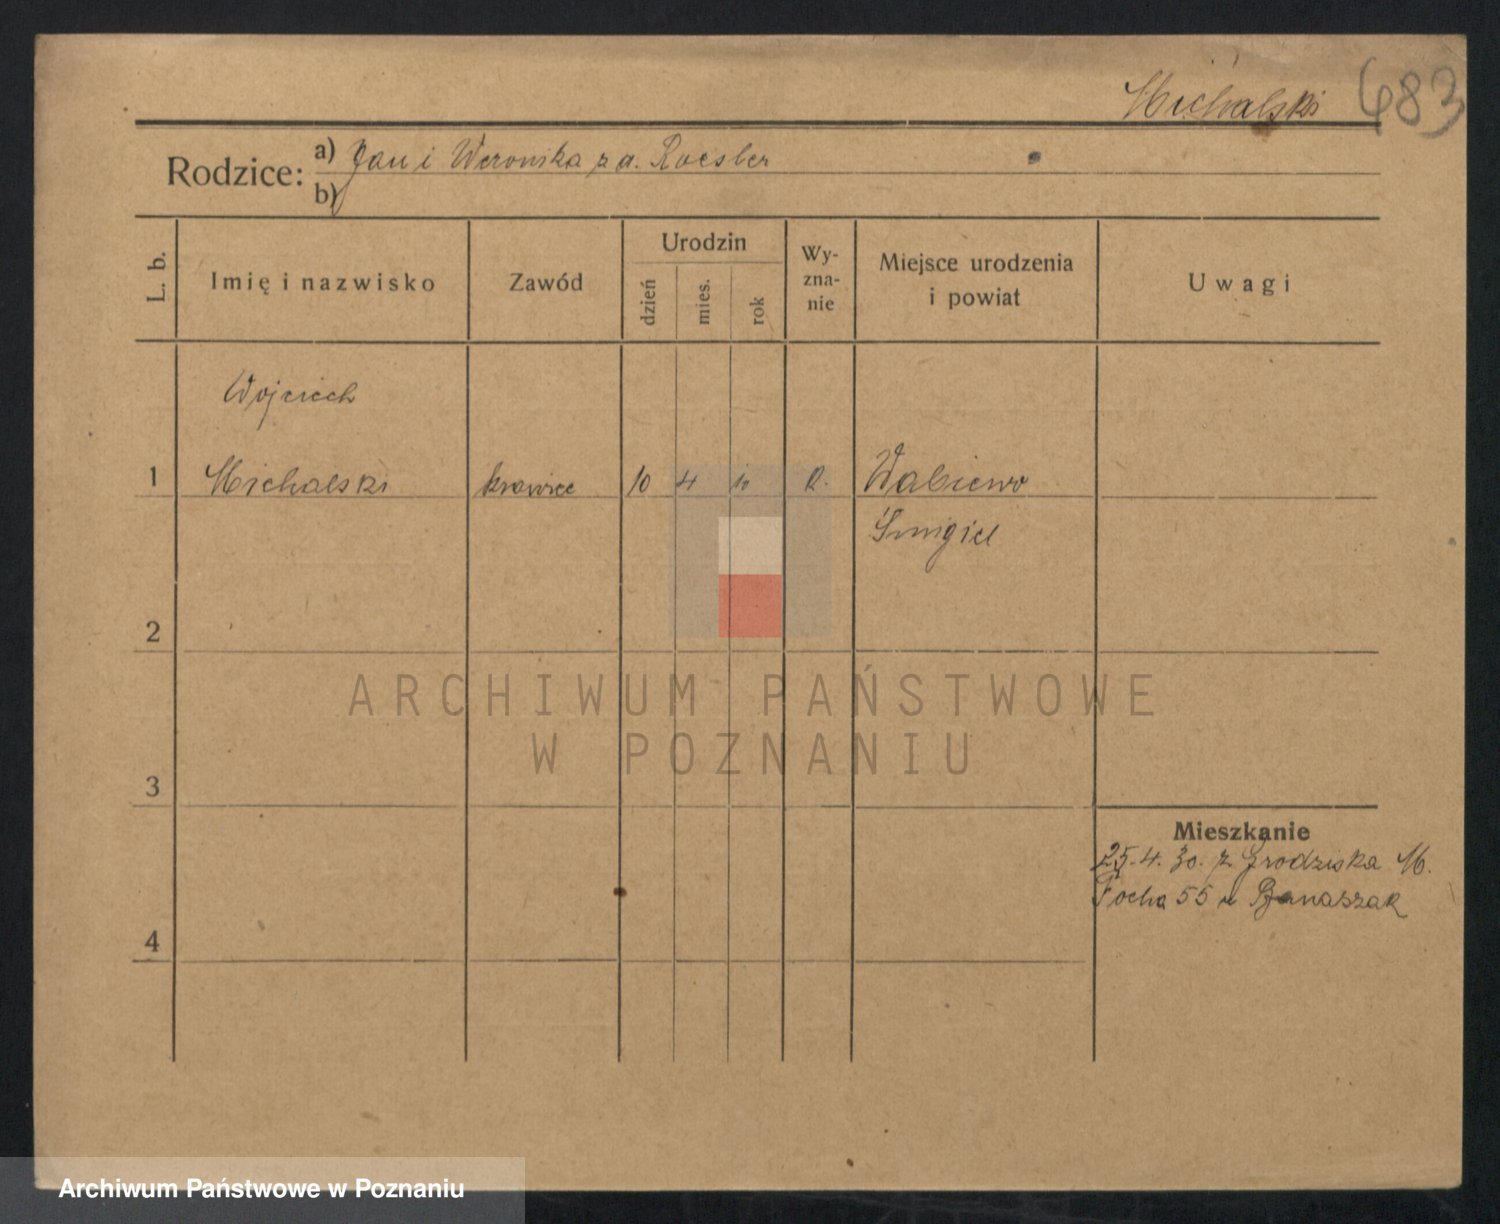 Michalski 483
Rodzice: a) Jan i Weronika z d. Roesler
b)
L. b.
Imię i nazwisko
Zawód
Urodzin
dzień
mies.
rok
Wy-
zna-
nie
Miejsce urodzenia
i powiat
Uwagi
Wojciech
1 Michalski krawiec 10 4 10 R. Wabiewo
Śmigiel
2
ARCHIWUM PAŃSTWOWE
W POZNANIU
3
Mieszkanie
25.4.30. z Grodziska M.
Focha 55 u Banaszak
4
Archiwum Państwowe w Poznaniu